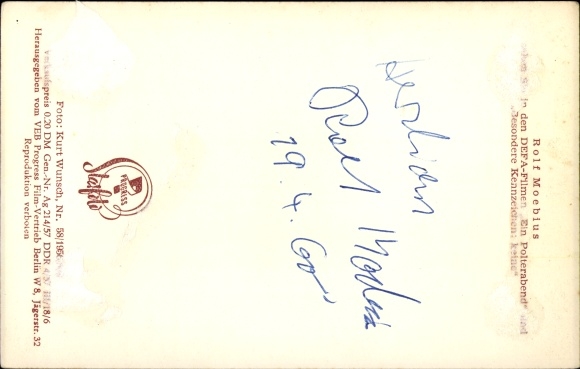 Rolf Moebius
sahen Sie in den DEFA-Filmen „Ein Polterabend“ und
„Besondere Kennzeichen: keine“
Herzlichst
Rolf Moebius
19. 4. 60
PROGRESS
Starfoto
Foto: Kurt Wunsch, Nr. 58/1956
Verkaufspreis 0,20 DM Gen.-Nr. Ag 214/57 DDR 4/57 III/18/6
Herausgegeben vom VEB Progress Film-Vertrieb Berlin W 8, Jägerstr. 32
Reproduktion verboten